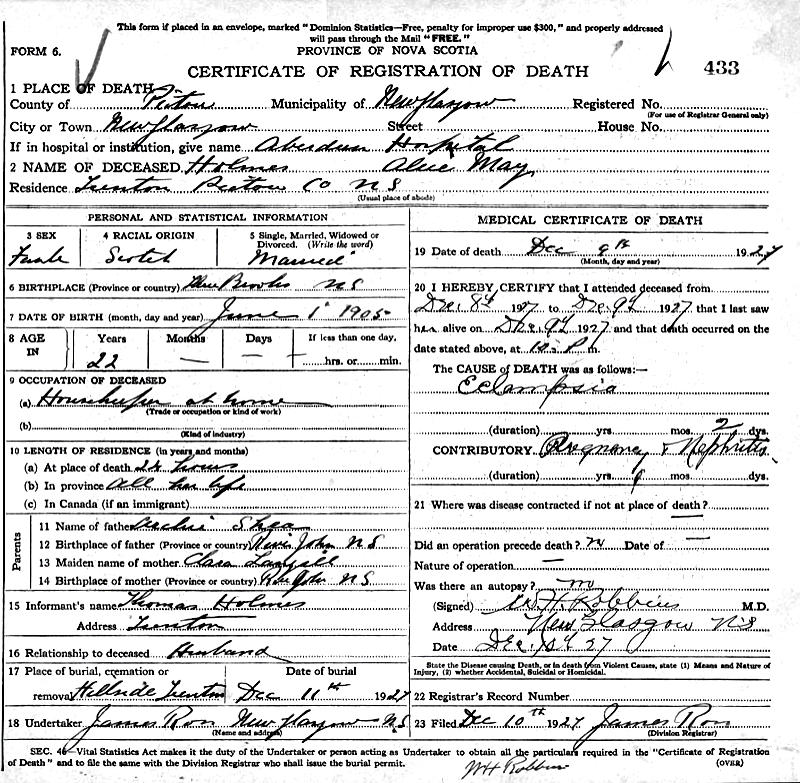 This form if placed in an envelope, marked "Dominion Statistics—Free, penalty for improper use $300," and properly addressed
will pass through the Mail "FREE."
FORM 6.
PROVINCE OF NOVA SCOTIA
CERTIFICATE OF REGISTRATION OF DEATH
433
1 PLACE OF DEATH—
County of Pictou Municipality of New Glasgow Registered No.
(For use of Registrar General only)
City or Town New Glasgow Street House No.
If in hospital or institution, give name Aberdeen Hospital
2 NAME OF DECEASED Holmes Alice May
Residence Trenton Pictou Co N S
(Usual place of abode)
PERSONAL AND STATISTICAL INFORMATION
3 SEX
4 RACIAL ORIGIN
5 Single, Married, Widowed or Divorced. (Write the word)
Female Scotch Married
6 BIRTHPLACE (Province or country) Brooks N S
7 DATE OF BIRTH (month, day and year) June 1 1905
8 AGE IN
Years Months Days If less than one day,
22 — — hrs. or min.
9 OCCUPATION OF DECEASED
(a) Housekeeper at home
(Trade or occupation or kind of work)
(b)
(Kind of industry)
10 LENGTH OF RESIDENCE (in years and months)
(a) At place of death 24 hours
(b) In province all her life
(c) In Canada (if an immigrant)
Parents
11 Name of father Archie Shea
12 Birthplace of father (Province or country) River John N S
13 Maiden name of mother Clara Langill
14 Birthplace of mother (Province or country) River John N S
15 Informant's name Thomas Holmes
Address Trenton
16 Relationship to deceased Husband
17 Place of burial, cremation or Date of burial
removal Hillside Trenton Dec 11th 1927
18 Undertaker James Ross New Glasgow N.S
(Name and address)
MEDICAL CERTIFICATE OF DEATH
19 Date of death Dec 9th 1927
(Month, day and year)
20 I HEREBY CERTIFY that I attended deceased from
Dec. 8th 1927 to Dec. 9th 1927 that I last saw
her alive on Dec. 9th 1927 and that death occurred on
date stated above, at P m.
The CAUSE OF DEATH was as follows:—
Eclampsia
(duration) yrs. mos. 2 dys.
CONTRIBUTORY Pregnancy & Nephritis
(duration) yrs. mos. dys.
21 Where was disease contracted if not at place of death? —
Did an operation precede death? no Date of —
Nature of operation —
Was there an autopsy? no
(Signed) W. H. Robbins M.D.
Address New Glasgow N S
Date Dec. 27
State the Disease causing Death, or in death from Violent Causes, state (1) Means and Nature of
Injury, (2) whether Accidental, Suicidal or Homicidal.
22 Registrar's Record Number
23 Filed Dec 10th 1927 James Ross
(Division Registrar)
SEC. 46—Vital Statistics Act makes it the duty of the Undertaker or person acting as Undertaker to obtain all the particulars required in the "Certificate of Registration
of Death" and to file the same with the Division Registrar who shall issue the burial permit. (OVER)
W H Robbins